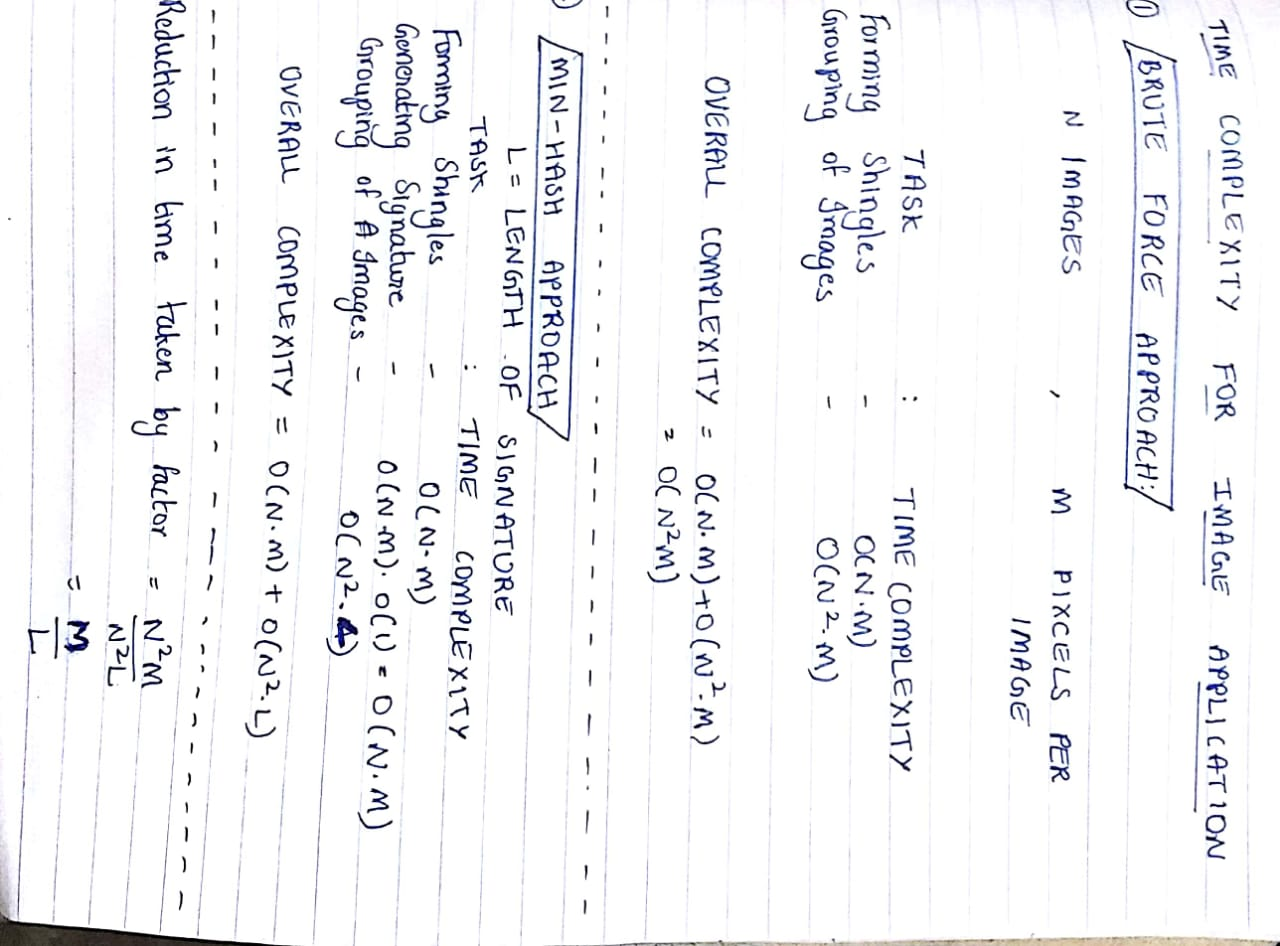 TIME COMPLEXITY FOR IMAGE APPLICATION
① BRUTE FORCE APPROACH:
N IMAGES , M PIXCELS PER
IMAGE
TASK : TIME COMPLEXITY
Forming Shingles - O(N.M)
Grouping of Images - O(N².M)
OVERALL COMPLEXITY = O(N.M)+O(N².M)
= O(N²M)
MIN-HASH APPROACH
L = LENGTH OF SIGNATURE
TASK : TIME COMPLEXITY
Forming Shingles - O(N.M)
Generating Signature - O(N.M).O(1) = O(N.M)
Grouping of Images - O(N².)
OVERALL COMPLEXITY = O(N.M) + O(N².L)
Reduction in time taken by factor = N²M / N²L
= M / L